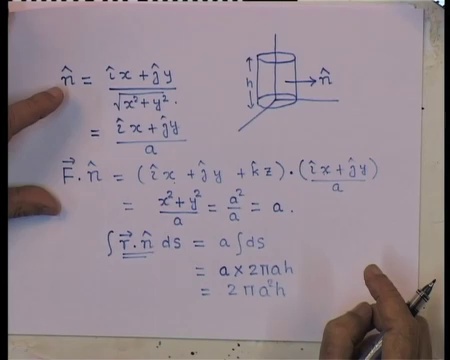 n̂ = (îx + ĵy) / √(x² + y²).
= (îx + ĵy) / a
h
n̂
F⃗ . n̂ = (îx + ĵy + k̂z) . ((îx + ĵy) / a)
= (x² + y²) / a = a² / a = a .
∫ r⃗ . n̂ ds = a ∫ ds
= a × 2πah
= 2πa²h